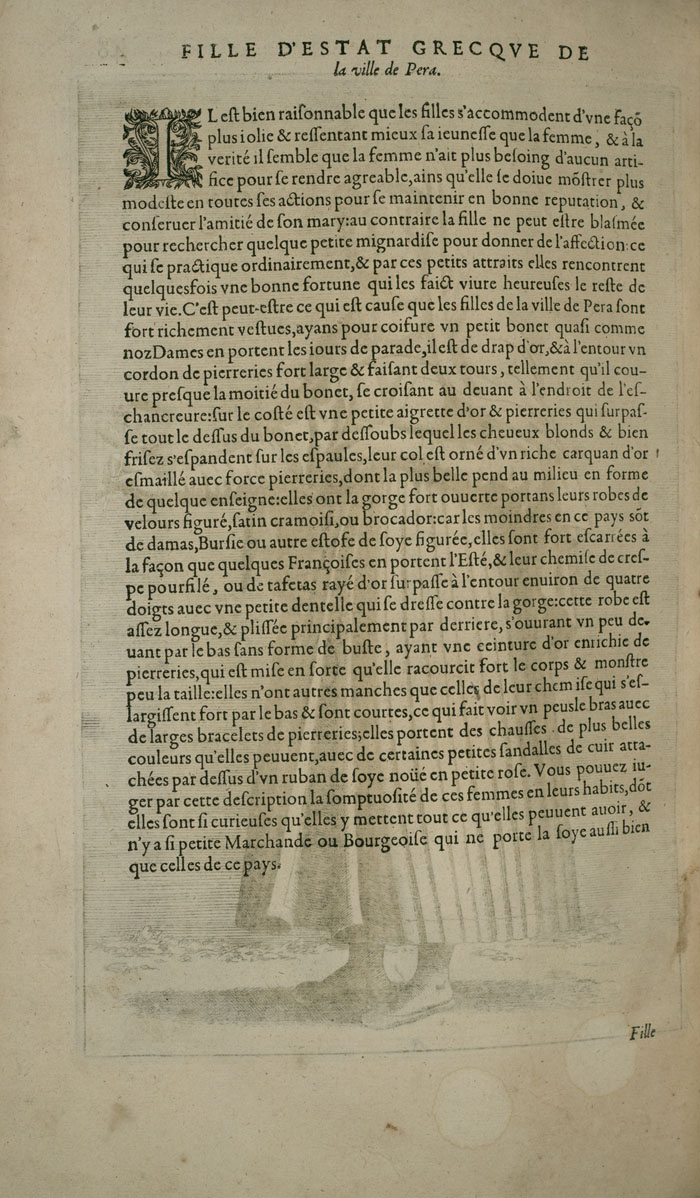 FILLE D'ESTAT GRECQVE DE
la ville de Pera.
IL eſt bien raiſonnable que les filles s'accommodent d'vne façõ
plus iolie & reſſentant mieux ſa ieuneſſe que la femme, & à la
verité il ſemble que la femme n'ait plus beſoing d'aucun arti-
fice pour ſe rendre agreable, ains qu'elle ſe doiue mõſtrer plus
modeſte en toutes ſes actions pour ſe maintenir en bonne reputation, &
conſeruer l'amitié de ſon mary: au contraire la fille ne peut eſtre blaſmée
pour rechercher quelque petite mignardiſe pour donner de l'affection: ce
qui ſe practique ordinairement, & par ces petits attraits elles rencontrent
quelquesfois vne bonne fortune qui les faict viure heureuſes le reſte de
leur vie. C'eſt peut-eſtre ce qui eſt cauſe que les filles de la ville de Pera ſont
fort richement veſtues, ayans pour coifure vn petit bonet quaſi comme
noz Dames en portent les iours de parade, il eſt de drap d'or, & à l'entour vn
cordon de pierreries fort large & faiſant deux tours, tellement qu'il cou-
ure preſque la moitié du bonet, ſe croiſant au deuant à l'endroit de l'eſ-
chancreure: ſur le coſté eſt vne petite aigrette d'or & pierreries qui ſurpaſ-
ſe tout le deſſus du bonet, par deſſoubs lequel les cheueux blonds & bien
friſez s'eſpandent ſur les eſpaules, leur col eſt orné d'vn riche carquan d'or
eſmaillé auec force pierreries, dont la plus belle pend au milieu en forme
de quelque enſeigne: elles ont la gorge fort ouuerte portans leurs robes de
velours figuré, ſatin cramoiſi, ou brocador: car les moindres en ce pays sõt
de damas, Burſie ou autre eſtofe de ſoye figurée, elles ſont fort eſcarrées à
la façon que quelques Françoiſes en portent l'Eſté, & leur chemiſe de creſ-
pe pourfilé, ou de tafetas rayé d'or ſurpaſſe à l'entour enuiron de quatre
doigts auec vne petite dentelle qui ſe dreſſe contre la gorge: cette robe eſt
aſſez longue, & pliſſée principalement par derriere, s'ouurant vn peu de-
uant par le bas ſans forme de buſte, ayant vne ceinture d'or enrichie de
pierreries, qui eſt miſe en ſorte qu'elle racourcit fort le corps & monſtre
peu la taille: elles n'ont autres manches que celles de leur chemiſe qui s'eſ-
largiſſent fort par le bas & ſont courtes, ce qui fait voir vn peu le bras auec
de larges bracelets de pierreries; elles portent des chauſſes de plus belles
couleurs qu'elles peuuent, auec de certaines petites ſandalles de cuir atta-
chées par deſſus d'vn ruban de ſoye noüé en petite roſe. Vous pouuez iu-
ger par cette deſcription la ſomptuoſité de ces femmes en leurs habits, dõt
elles ſont ſi curieuſes qu'elles y mettent tout ce qu'elles peuuent auoir, &
n'y a ſi petite Marchande ou Bourgeoiſe qui ne porte la ſoye auſſi bien
que celles de ce pays.
Fille